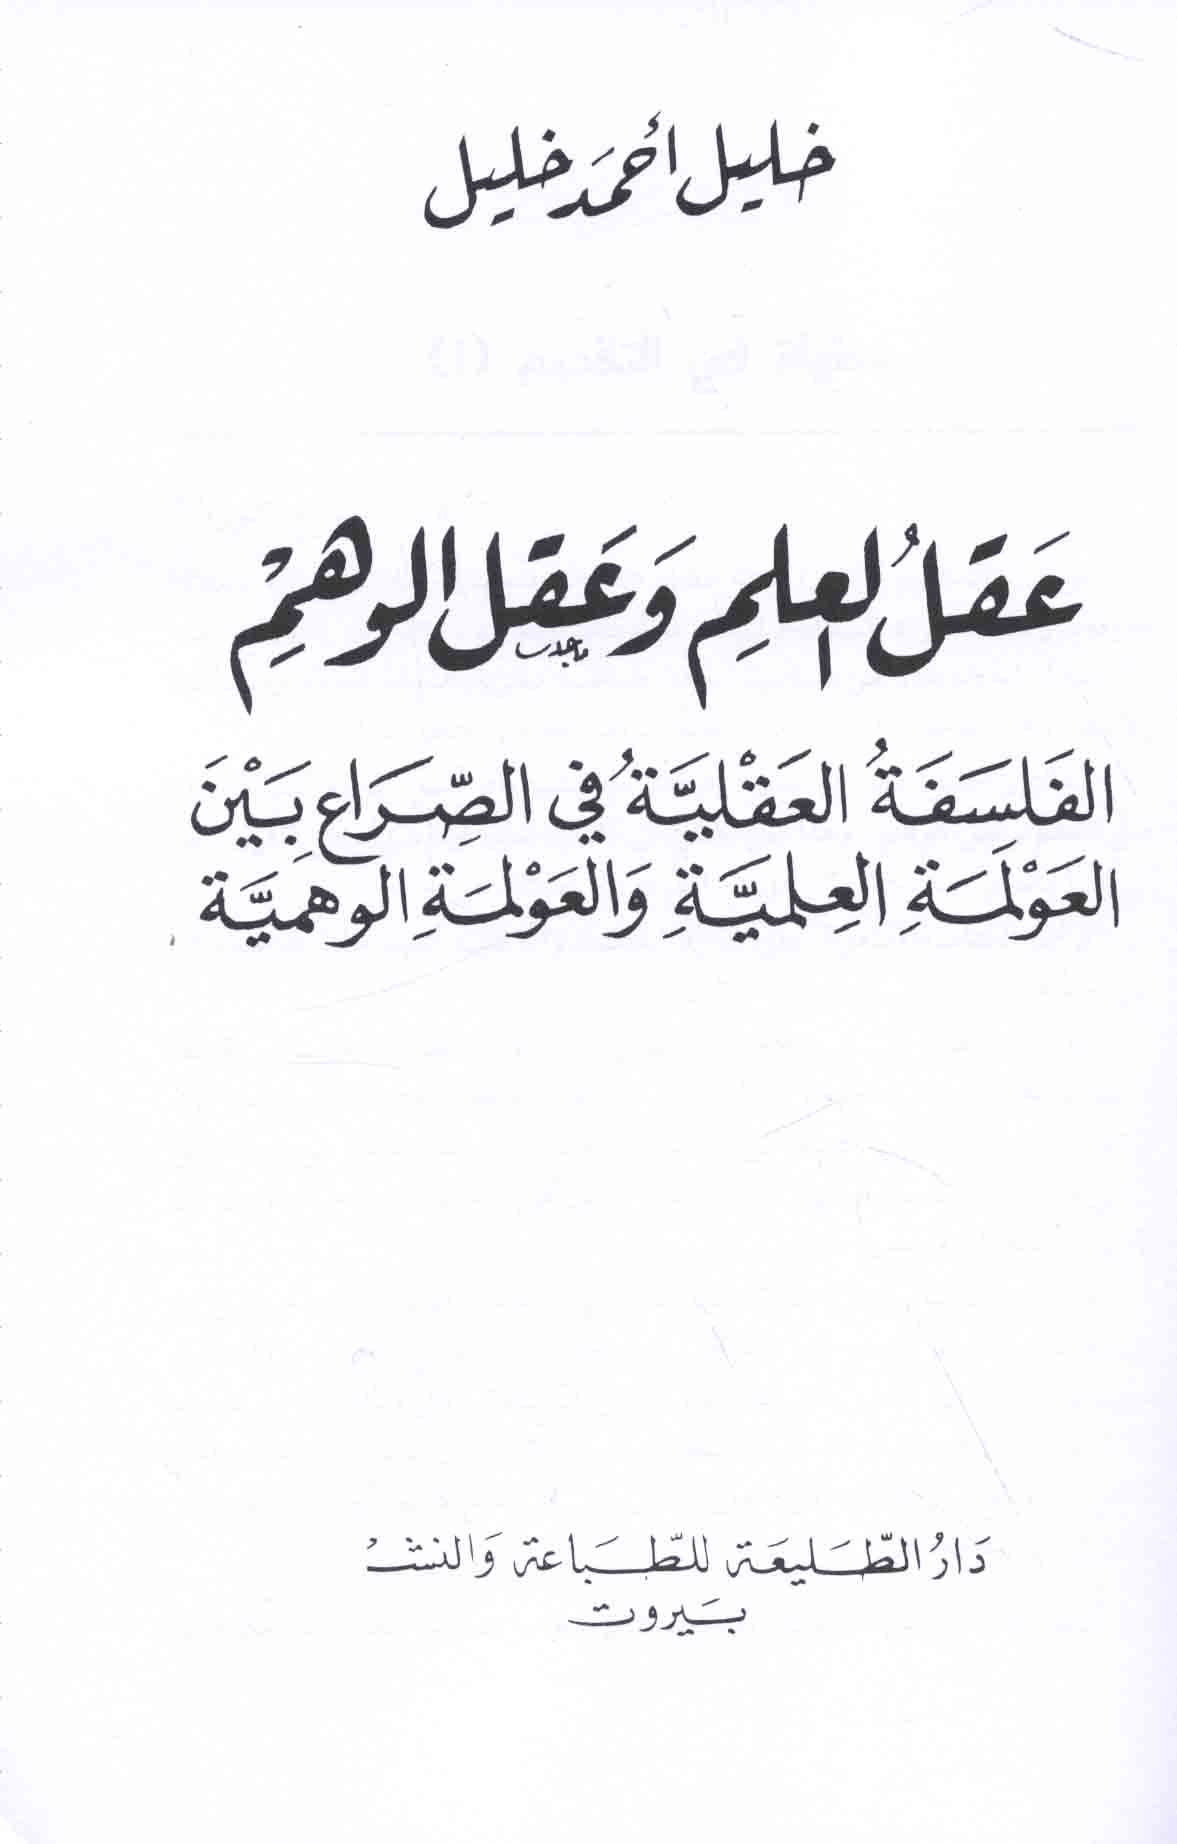 خليل أحمَد خليل
عَقلُ العِلمِ وَعَقل الوهمِ
الفَلسَفَةُ العَقْليَّةُ في الصِّرَاعِ بَيْنَ
العَوْلَمَةِ العِلميَّةِ وَالعَوْلمَةِ الوهميَّة
دَارُ الطَّليعَة للطَّبَاعة وَالنشْـ
بَيروت